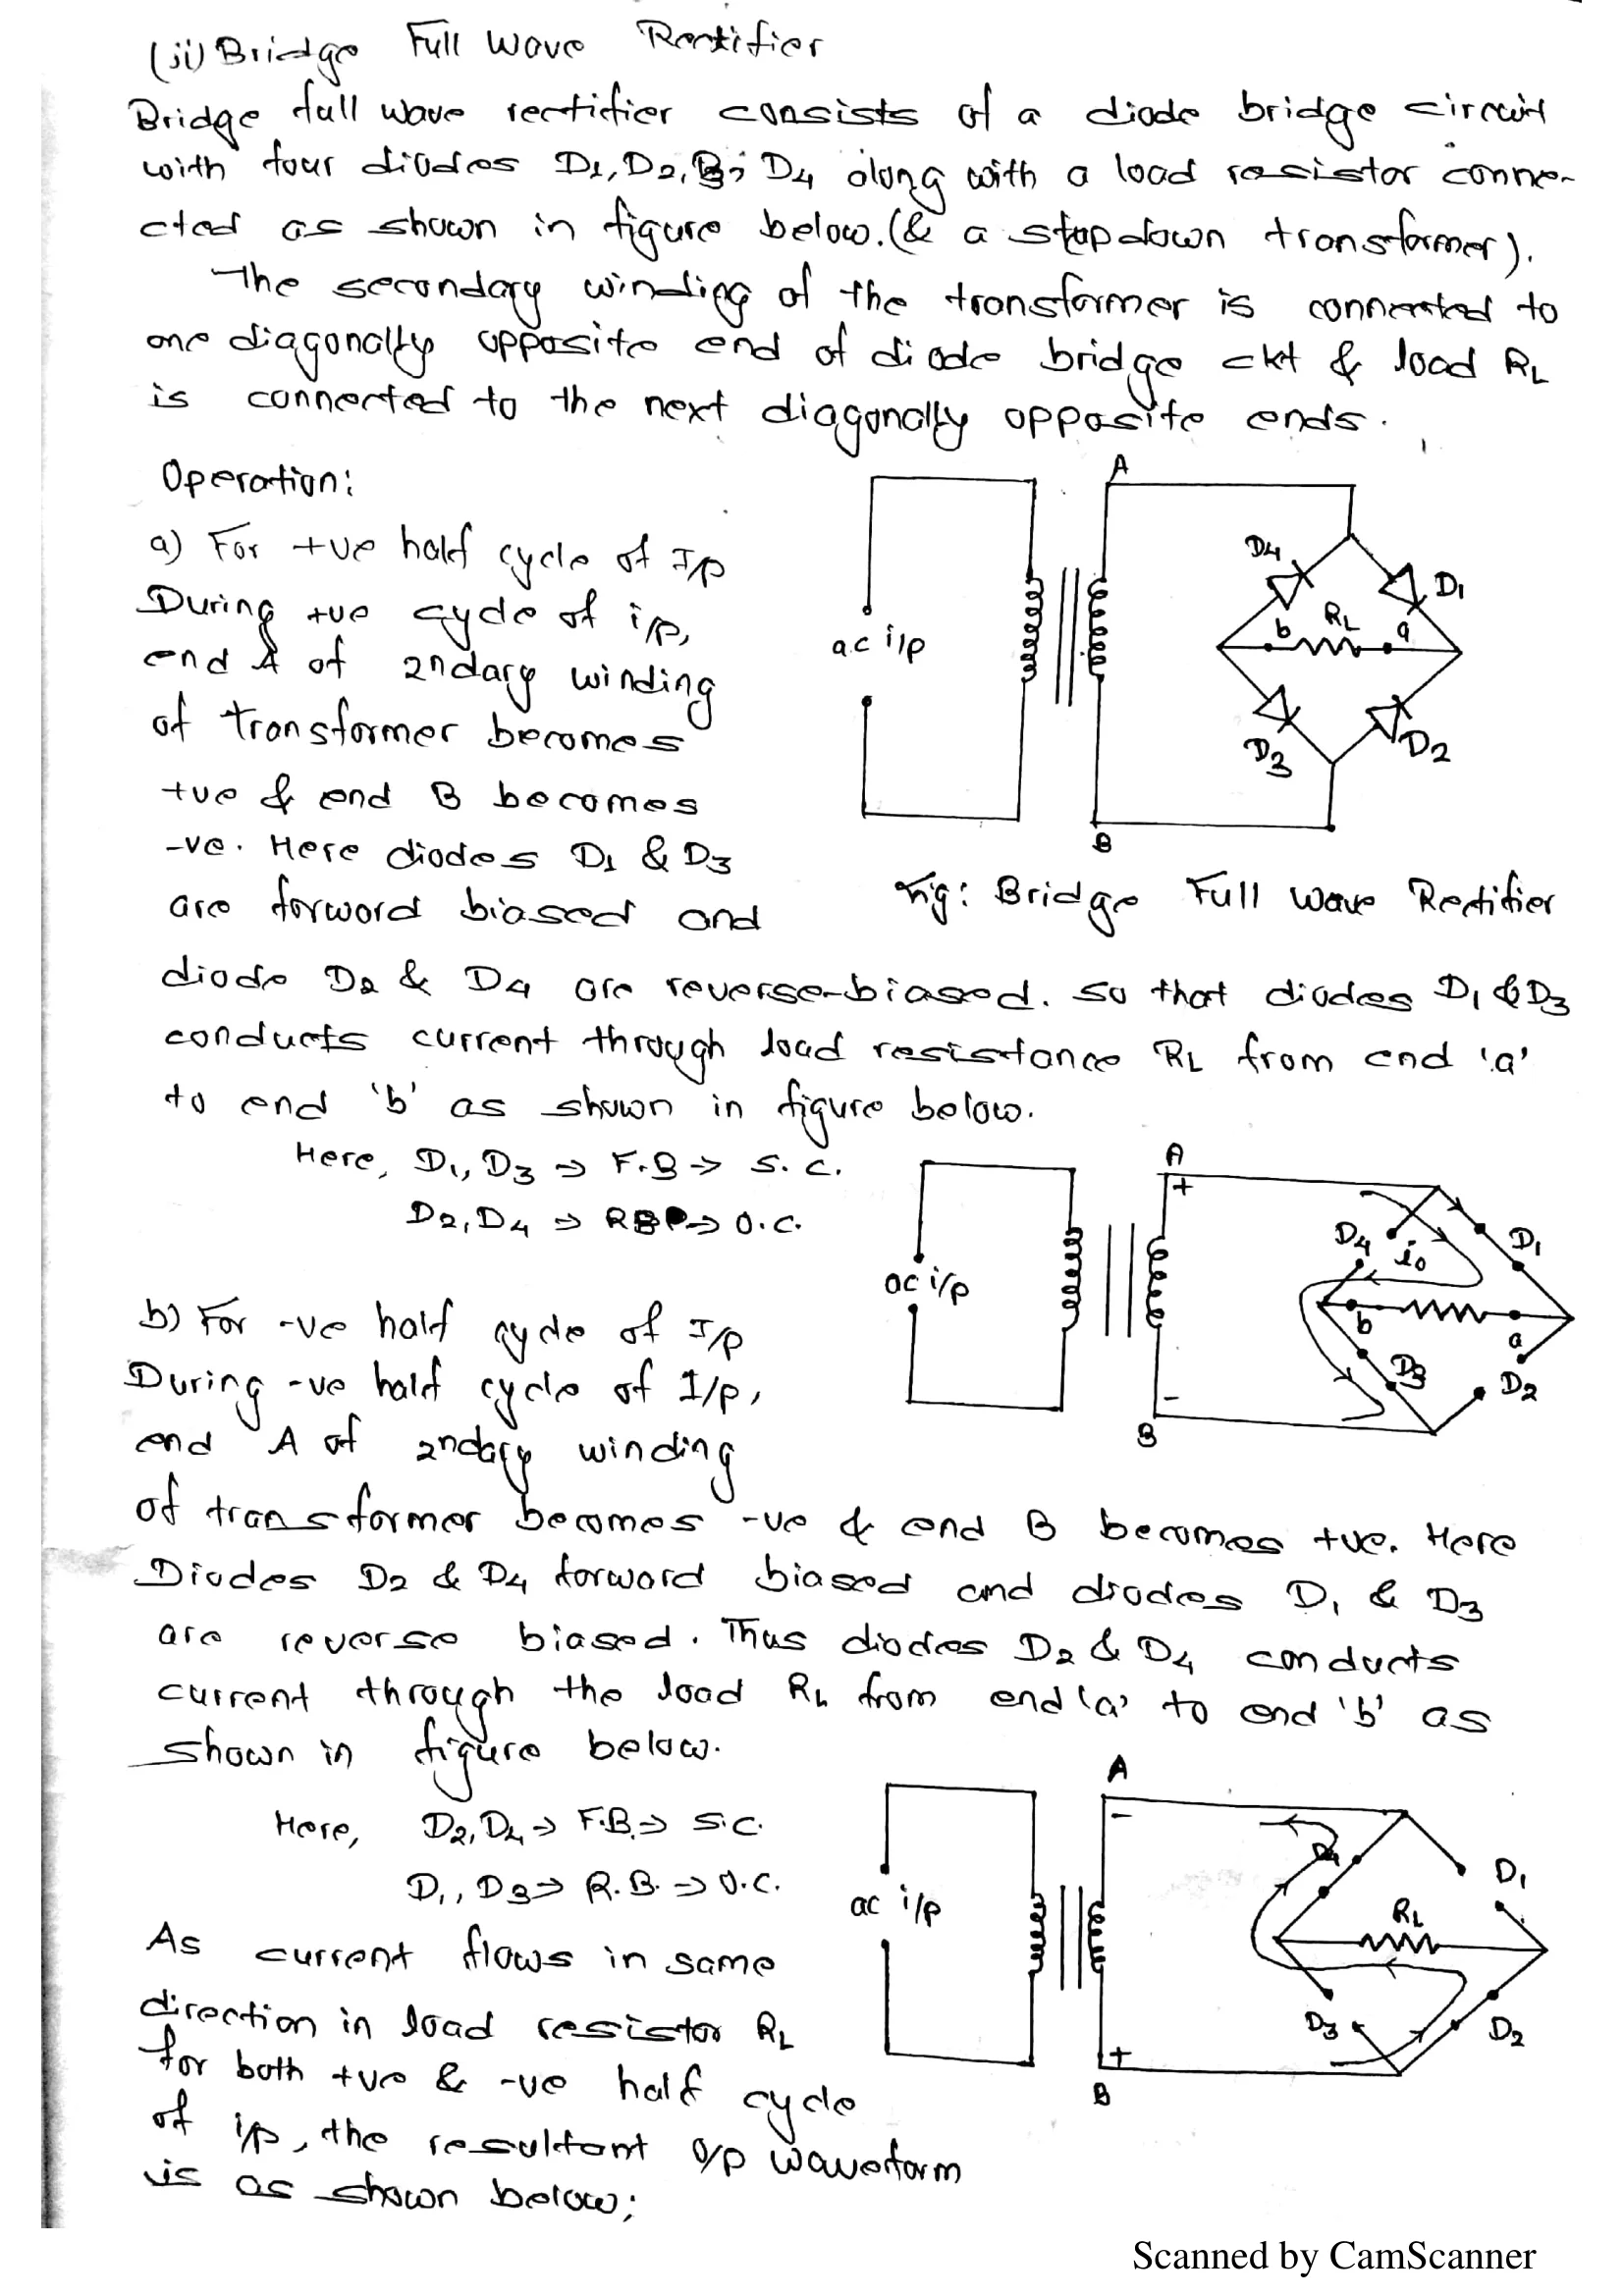 (ii) Bridge Full Wave Rectifier
Bridge full wave rectifier consists of a diode bridge circuit
with four diodes D1, D2, D3, D4 along with a load resistor conne-
cted as shown in figure below. (& a stepdown transformer).
The secondary winding of the transformer is connected to
one diagonally opposite end of diode bridge ckt & load RL
is connected to the next diagonally opposite ends.
Operation:
a) For +ve half cycle of I/p
During +ve cycle of i/p,
end A of 2ndary winding
of transformer becomes
+ve & end B becomes
-ve. Here diodes D1 & D3
are forward biased and
A
D4
D1
RL
b
a
ac i/p
D3
D2
B
Fig: Bridge Full Wave Rectifier
diode D2 & D4 are reverse-biased. So that diodes D1 & D3
conducts current through load resistance RL from end 'a'
to end 'b' as shown in figure below.
Here, D1, D3 ⇒ F.B → S.C.
D2, D4 ⇒ RB ⇒ O.C.
A
+
D4
io
D1
ac i/p
b
a
D3
D2
-
B
b) For -ve half cycle of I/p
During -ve half cycle of I/p,
end A of 2ndary winding
of transformer becomes -ve & end B becomes +ve. Here
Diodes D2 & D4 forward biased and diodes D1 & D3
are reverse biased. Thus diodes D2 & D4 conducts
current through the load RL from end 'a' to end 'b' as
shown in figure below.
Here, D2, D4 ⇒ F.B. ⇒ S.C.
D1, D3 ⇒ R.B. ⇒ O.C.
A
-
D4
D1
ac i/p
RL
D3
D2
+
B
As current flows in same
direction in load resistor RL
for both +ve & -ve half cycle
of i/p, the resultant o/p waveform
is as shown below;
Scanned by CamScanner